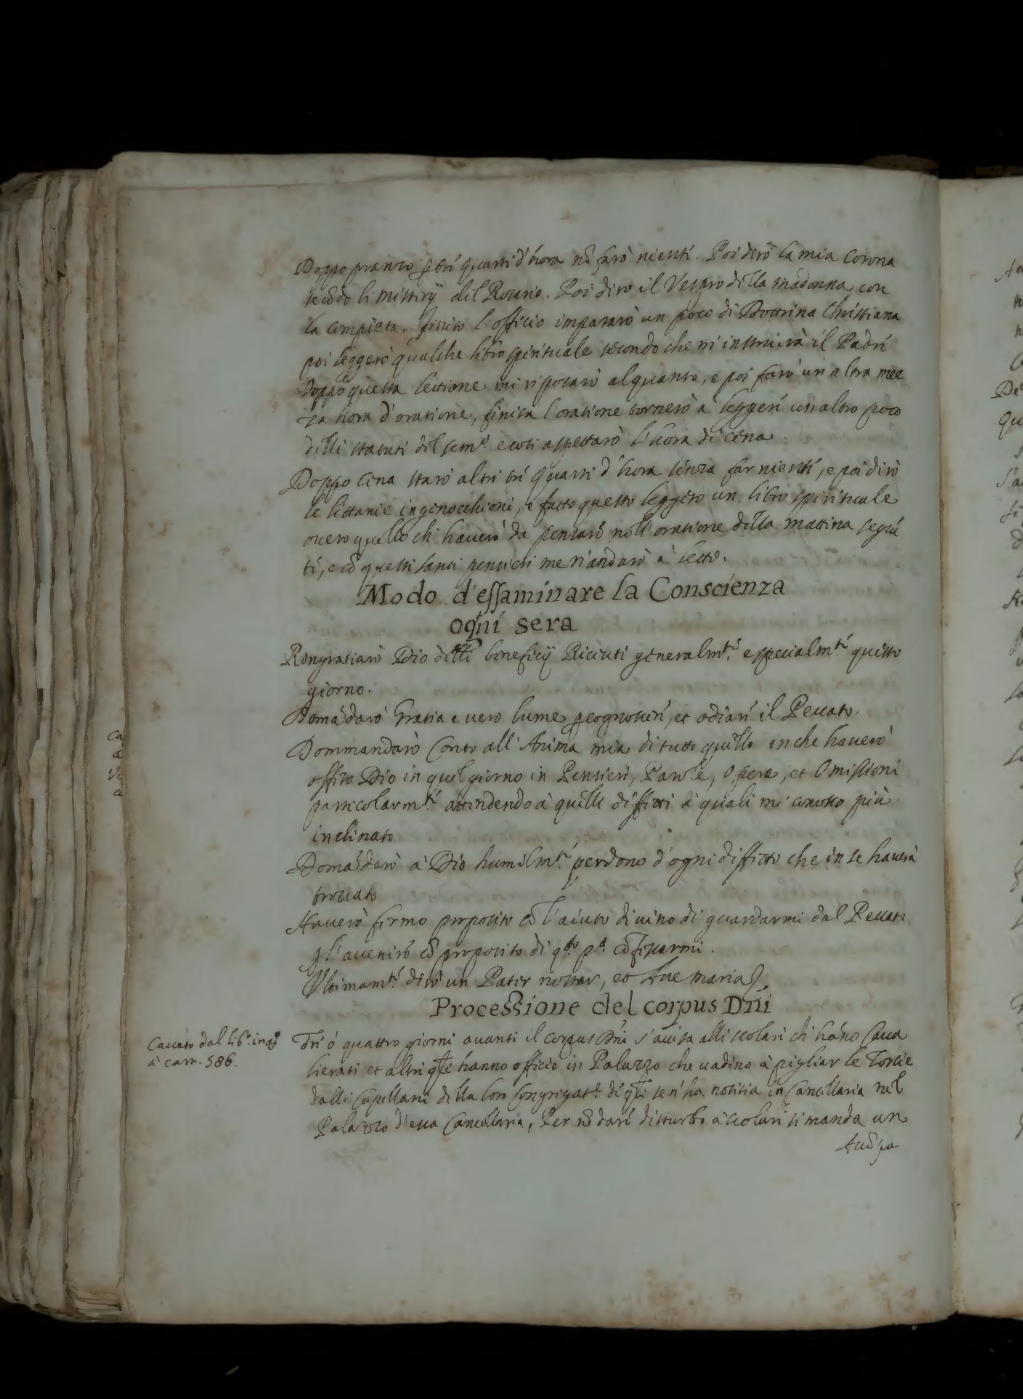 Doppo pranzo p tré quarti d'hora nō farò nienté. Poi dirò la mia Corona
secōdo li misterij del Rosario. Poi dirò il Vespro della Madonna, con
la compieta. finito l'officio impararò un poco di Dottrina Christiana
poi leggerò qualche libro spirituale secondo che mi instruirà il Padré
Doppo questa lettione mi riposarò alquanto, e poi farò un altra mez
za hora d'oratione, finita l'oratione tornerò a leggeré un altro poco
delli statuti del sem.º e così aspettarò l'hora di cena
Doppo cena starò altri tré quarti d'hora senza far nienté, e poi dirò
le littanie ingenocchioni, e fatto questo leggerò un libro spirituale
overo quello ch haverò da pensaré nell'oratione della mattina segué
té, e cō questi santi pensieri me n'andarò à letto.
Modo d'essaminare la Conscienza
ogni sera
Rengratiarò Dio delli beneficij Riceuti generalm.té e specialm.té questo
giorno.
Domādarò Gratia e vero lume p cognosceré, et odiaré il Peccato.
Dommandarò Conto all'Anima mia di tutto quello in che haverò
offeso Dio in quel giorno in Pensieri, Parole, Opere, et Omissioni
particolarm.té attendendo à quelli difetti à quali mi conosco più
inclinato
Domādarò à Dio humilm.té perdono d'ogni difetto che in se haverà
trovato
Haverò firmo proposito cō l'aiuto divino di guardarmi dal Peccato
p l'avenire cō proposito di q.to p.ª cōfessarmi.
Ultimam.té dirò un Pater noster, et Ave maria
Processione del corpus Dñi
Cavato dal lib.º in q.º
à carr. 586.
Tré ò quattro giorni avanti il corpus Dñi s'avisa alli scolari ch hāno Cava
lierati et altri che hanno officio in Palazzo che vadino à pigliar le Torcie
dalli Capellani della loro Congregat.e di q̃sti se n'ha notitia in Cancellaria nel
Palazzo d'essa Cancellaria, Per nō daré disturbo à scolari si manda un